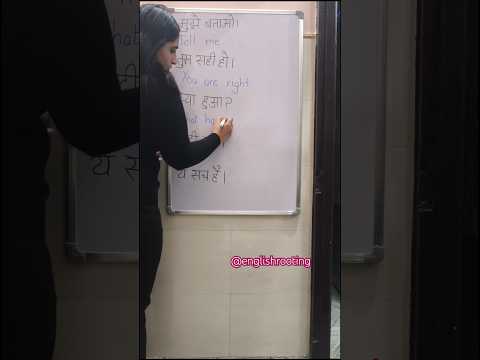 मुझे बताओ।
Tell me
तुम सही हो।
You are right
क्या हुआ?
ये सच है।
@englishrooting